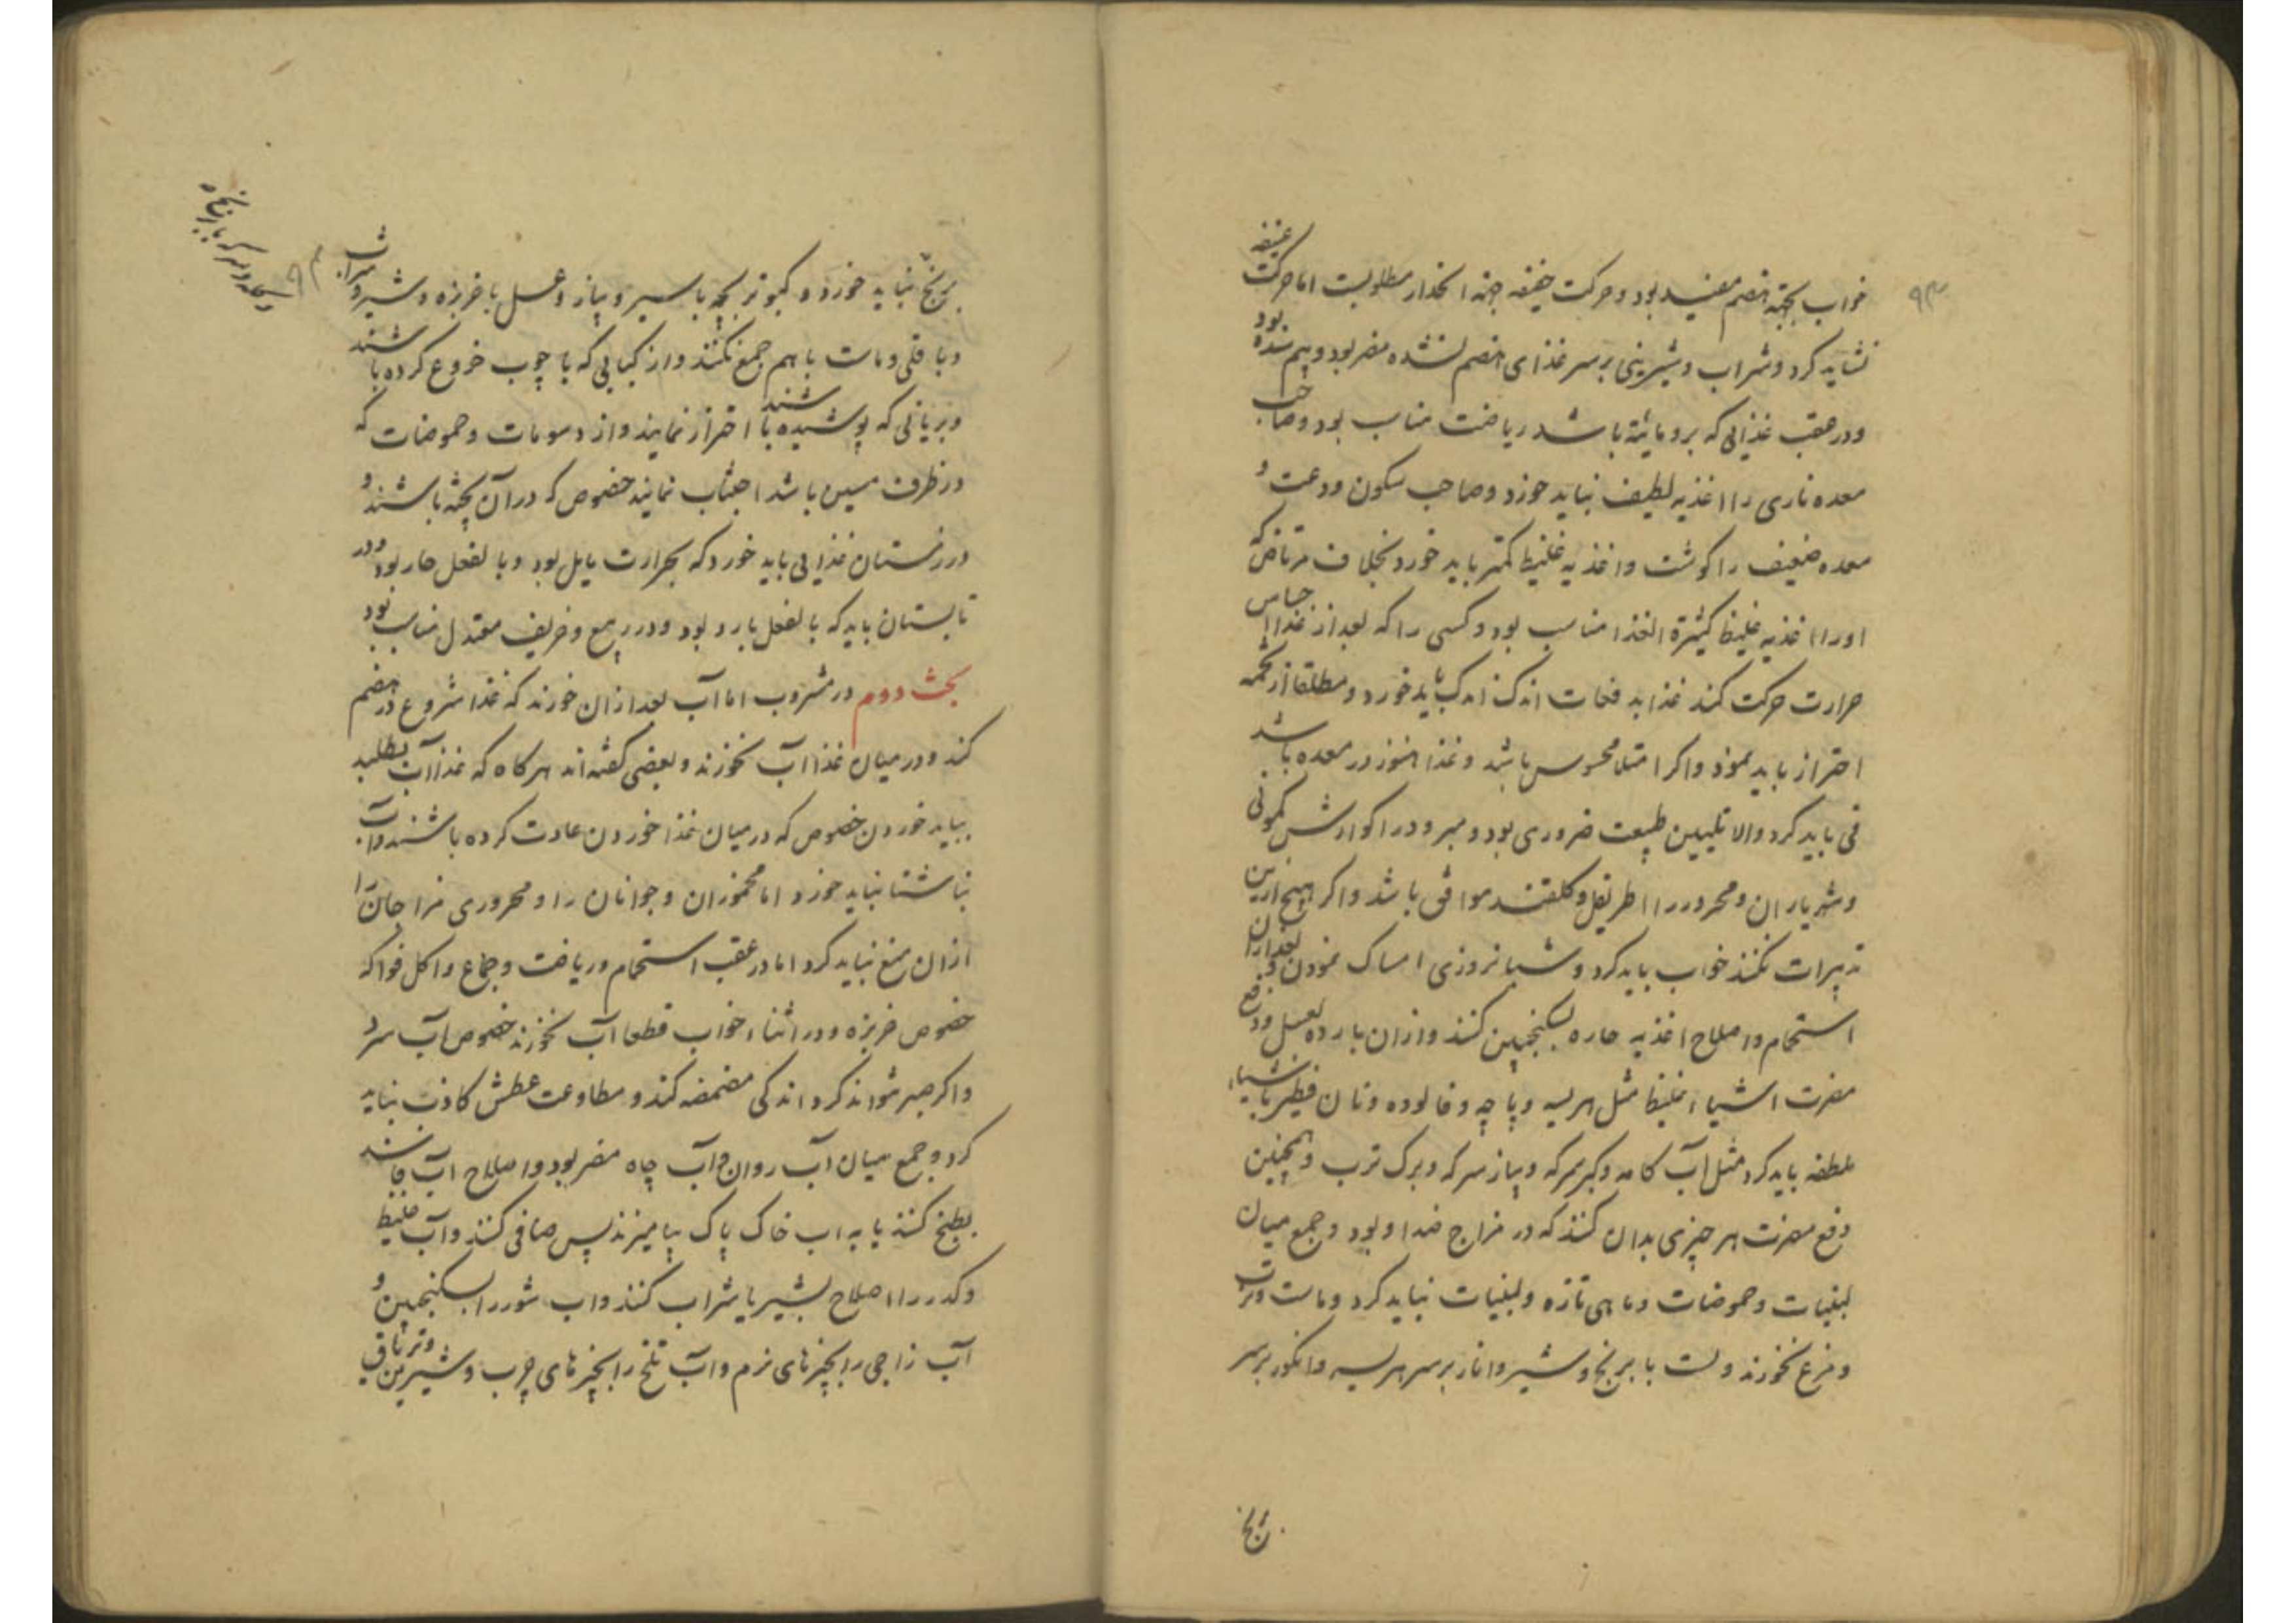 خواب بجهته هضم مفید بود و حرکت خفیفه جهته انحدار مطلوبست اما حرکت عنیفه
نشاید کرد و شراب و شیرینی بر سر غذای هضم نشده مضر بود و هم سده بود
و در عقب غذایی که برو مائیة باشد ریاضت مناسب بود و صاحب
معده ناری را اغذیه لطیف نباید خورد و صاحب سکون ودعت و
معده ضعیف را کوشت و اغذیه غلیظ کمتر باید خورد بخلاف مرتاض که
او را اغذیه غلیظ کثیرة الغذا مناسب بود و کسی را که بعد از غذا احساس
حرارت حرکت کند غذا بدفعات اندک اندک باید خورد و مطلقا از تخمه
احتراز باید نمود و اکر امتلا محسوس باشد و غذا هنوز در معده باشد
قی باید کرد والا تلیین طبیعت ضروری بود و مبرود را کوارش کمونی
و شهریاران و محرور را اطریفل و کلقند موافق باشد و اکر هیچ ازین
تدبیرات نکنند خواب باید کرد و شبانروزی امساک نمودن و بعد از ان
استحمام و اصلاح اغذیه حاره بسکنجبین کنند و از ان بارده بعسل و دفع
مضرت اشیاء غلیظ مثل هریسه و پاچه و فالوده و نان فطیر باشیاء
ملطفه باید کرد مثل آب کامه و کبر سرکه و پیاز سرکه و برک ترب و همچنین
دفع مضرت هر چیزی بدان کنند که در مزاج ضد او بود و جمع میان
لبنیات و حموضات و ماهی تازه و لبنیات نباید کرد و ماست و ترب
و مرغ نخورند و لت با برنج و شیر و انار بر سر هریسه و انکور بر سر
برنج
۹۳
برنج نباید خورد و کبوتر بچه با سیر و پیاز و عسل با خربزه و شیر و شراب
و باقلی و ماست با هم جمع نکنند و از کبابی که با چوب خروع کرده باشند
و بریانی که پوشیده باشند احتراز نمایند و از دسومات و حموضات که
در ظرف مسین باشد اجتناب نمایند خصوص که در آن پخته باشند و
در زمستان غذایی باید خورد که بحرارت مایل بود و بالفعل حار بود و در
تابستان باید که بالفعل بارد بود و در ربیع و خریف معتدل مناسب بود
بحث دوم در مشروب اما آب بعد از ان خورند که غذا شروع در هضم
کند و در میان غذا آب نخورند و بعضی کفته اند هر کاه که غذا آب بطلبد
بباید خوردن خصوص که در میان غذا خوردن عادت کرده باشند و آب
بناشتا نباید خورد اما مخموران و جوانان را و محروری مزاجان را
از ان منع نباید کرد اما در عقب استحمام و ریاضت و جماع و اکل فواکه
خصوص خربزه و در اثناء خواب قطعا آب نخورند خصوص آب سرد
و اکر صبر نتواند کرد اندکی مضمضه کند و مطاوعت عطش کاذب نباید
کرد و جمع میان آب روان و آب چاه مضر بود و اصلاح آب فاسد
بطبخ کنند یا به اب خاک پاک بیامیزند پس صافی کنند و آب غلیظ
و کدر را اصلاح بشیر یا شراب کنند و اب شور را بسکنجبین و
آب زاجی را بچیزهای نرم و آب تلخ را بچیزهای چرب و شیرین و تریاق